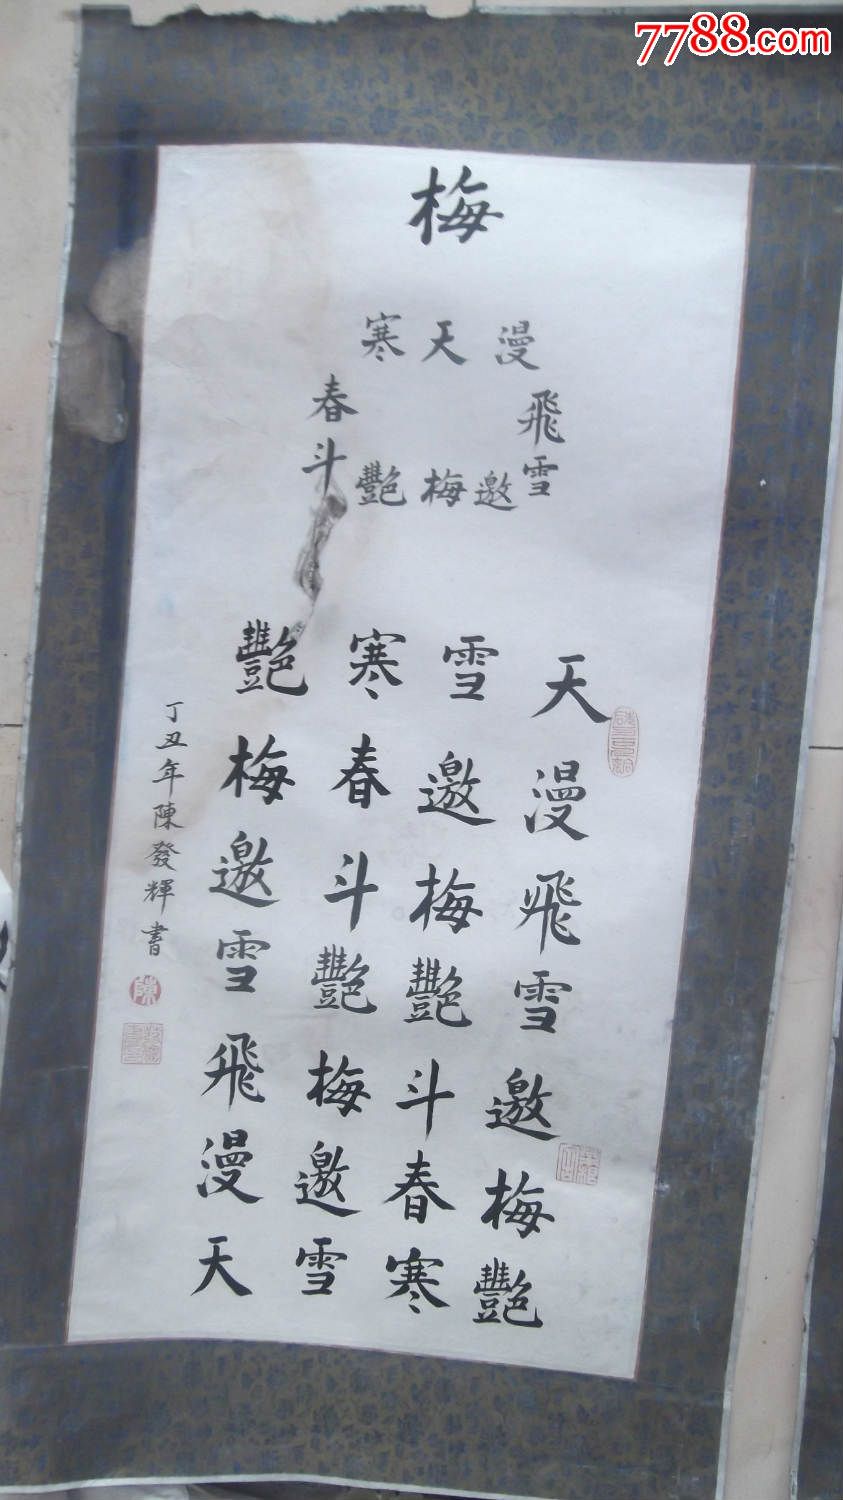 7788.com
梅
天漫飛雪邀梅艷斗春寒
天漫飛雪邀梅艷
雪邀梅艷斗春寒
寒春斗艷梅邀雪
艷梅邀雪飛漫天
丁丑年陳發輝書
陳